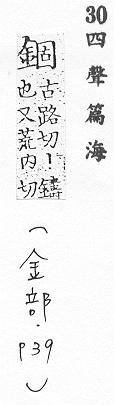 30 四聲篇海
錮
古路切鑄
也又荒内切
(金部.P39)